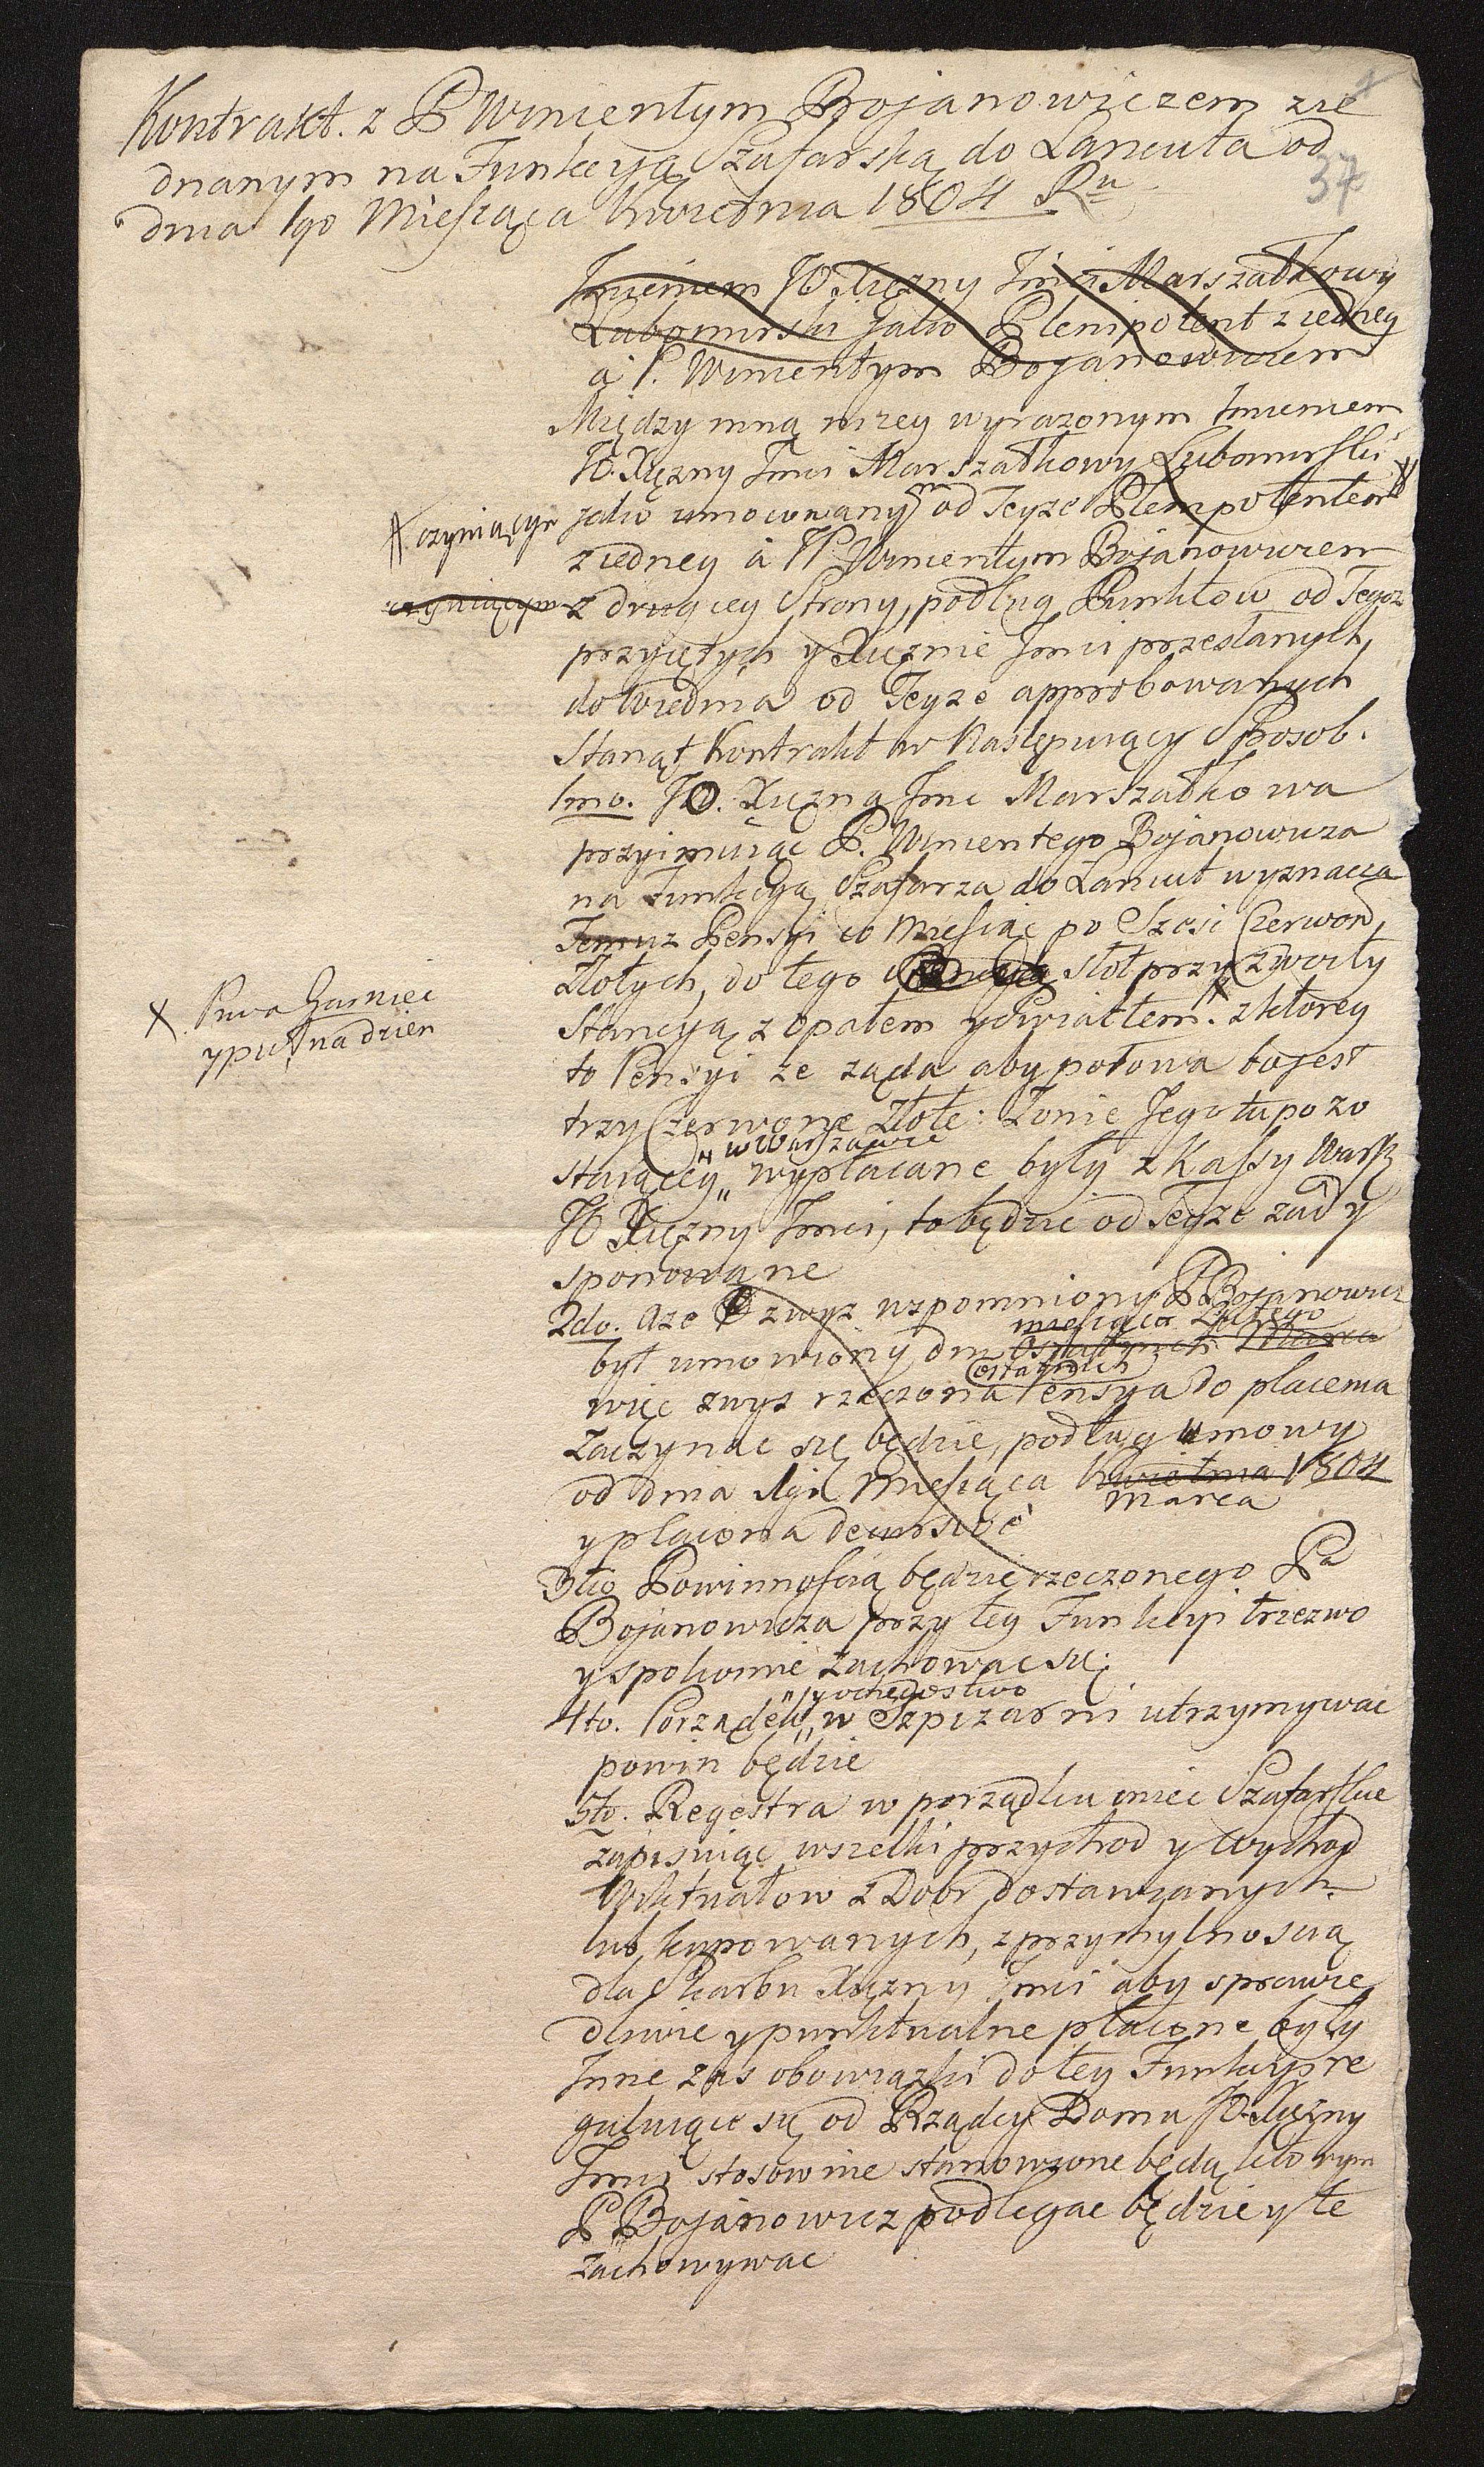 37
Kontrakt. z P Wincentym Bojanowiczem zie
dnanym na Funkcyą Szafarską do Lancuta od
dnia 1go Miesiąca Kwietnia 1804 Ru
Imieniem JO. Xiężny Imci Marszałkowy
Lubomirski Jako Plenipotent z iedney
á P. Wincentym Bojanowiczem
Między mną niżey wyrazonym Imieniem
JO. Xiężny Imci Marszałkowy Lubomirski
jako umocowanym od Teyze Plenipotentem
czyniącym
z iedney á P. Wincentym Bojanowiczem
czyniącym
z drugiey Strony, podług Punktow od Tegoz
przyiętych y Xiężnie Imci przesłanych,
do Wiednia od Teyze approbowanych
Stanął Kontrakt w Następuiący Sposob.
1mo. JO. Xiężna Imc Marszałkowa
przyimuiąc P. Wincentego Bojanowicza
na Funkcyą Szafarza do Lancut wyznacza
Temuz Pensyi co Miesiąc po Szesc Czerwon
Złotych, do tego stoł przyzwoity
X Piwa Garniec
y pul na dzien
Stancyą z opałem y Swiatłem. z ktorey
to Pensyi ze ząda aby połowa to jest
trzy Czerwone Złote: Zonie Jego tu pozo
" w Warszawie
staiącey " wypłacane były z Kassy Warsz
JO Xiężny Imci, to będzie od Teyze zad y
sponowane
2do. Aze zwyz wzpomniony P Bojanowicz
miesiąca Lutego
był umowiony dni ostatnich Marca
ostatnich
więc zwyz rzeczona Pensya do płacenia
zaczynac się będzie, podług umowy
od dnia 1go Miesiąca Kwietnia 1804
Marca
y płacona decursive
3tio Powinnoscią będzie rzeczonego Pa
Bojanowicza przy tey Funkcyi trzezwo
y spokoynie zachowac się.
" y ochędostwo
4to. Porządek " w Szpizarni utrzymywac
powin będzie
5to. Regestra w porządku miec Szafarskie
zapisuiąc wszelki przychod y wychod
Wiktuałow z Dobr dostawianych
lub kupowanych, z przychylnoscią
dla Skarbu Xiężny Imci aby sprawie
dliwie y punktualne płacone były
Inne zas obowiązki do tey Funkcyi re
guluiące się od Rządcy Domu JO. Xiężny
Imci stosownie stanowione będą ktorym
P. Bojanowicz podlegac będzie y te
zachowywac